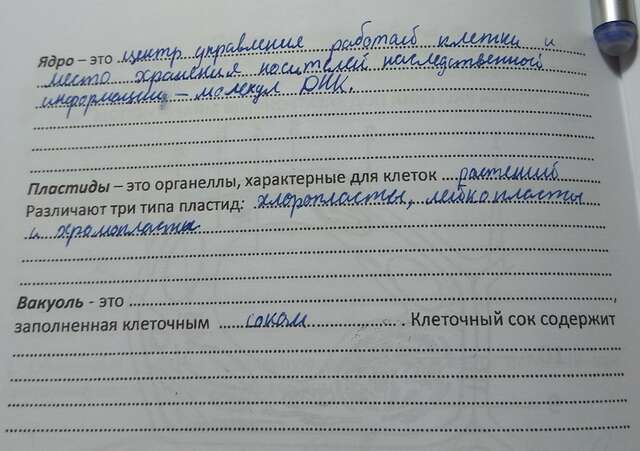 Ядро – это центр управления работой клетки и
место хранения носителей наследственной
информации – молекул ДНК.
Пластиды – это органеллы, характерные для клеток растений
Различают три типа пластид: хлоропласты, лейкопласты
и хромопласты
Вакуоль - это ,
заполненная клеточным соком. Клеточный сок содержит